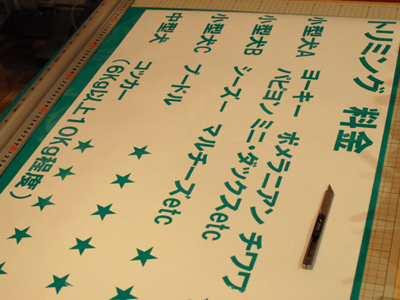 トリミング 料金
小型犬A ヨーキー ポメラニアン チワワ
パピヨン ミニ・ダックスetc
小型犬B シーズー マルチーズetc
小型犬C プードル
中型犬 コッカー
(6Kg以上10Kg程度)